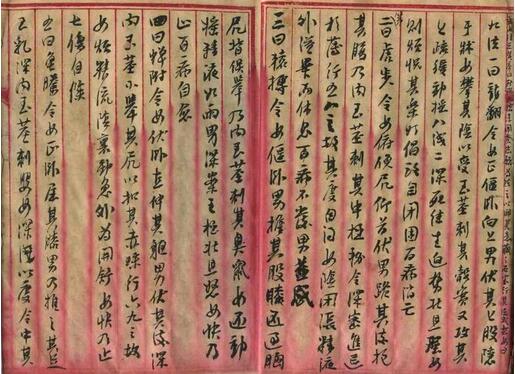 九法一曰龍翻令女正偃卧向上男伏其上股隱
于牀女攀其陰以受玉莖刺其穀實又攻其
上疏緩動摇八浅二深死往生返勢壯且強女
則煩悦其樂如倡致自閉固百病消亡
二曰虎步令女俯俛尻仰首伏男跪其後抱
其腹乃内玉莖刺其中極務令深密進退
相薄行五八之數其度自得女陰閉張精液
外溢畢而休息百病不發男益盛
三曰猿搏令女偃卧男擔其股膝還過胸
尻背俱舉乃内玉莖刺其臭鼠女還動
摇精液如雨男深案之極壯且怒女快乃
止百病自愈
四曰蟬附令女伏卧直伸其軀男伏其後深
内玉莖小舉其尻以扣其赤珠行六九之數
女煩精流陰裏動急外為開舒女快乃止
七傷自除
五曰龜騰令女正卧屈其兩膝男乃推之其足
至乳深内玉莖刺嬰女深淺以度令中其